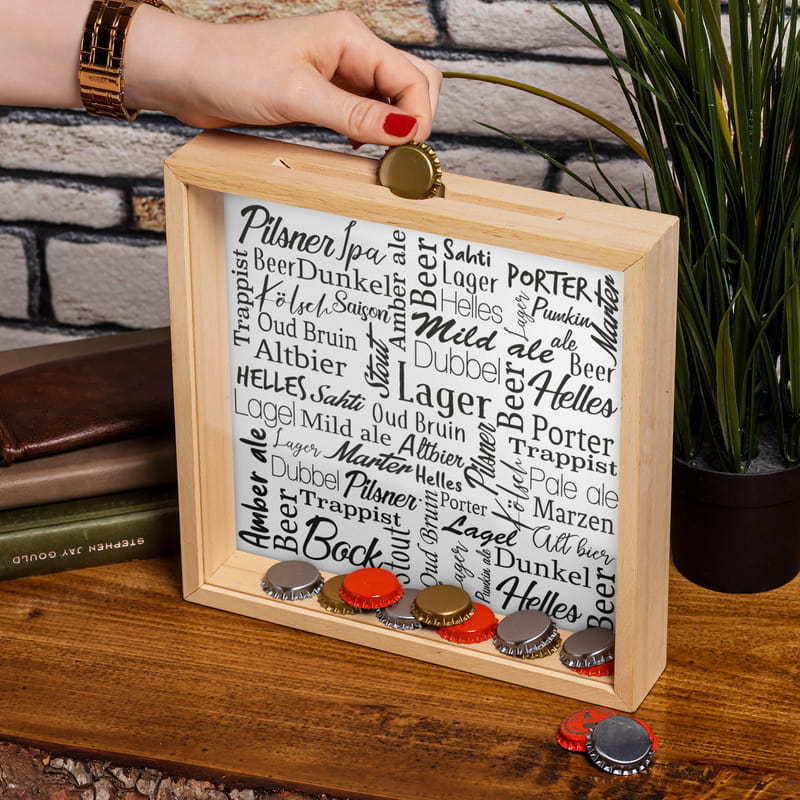 Pilsner
Ipa
Amber ale
Beer
Sahti
Lager
Helles
PORTER
Marten
Trappist
Beer
Dunkel
Kölsch
Saison
Lager
Pumkin
ale
Oud Bruin
Stout
Mild ale
Beer
Altbier
Dubbel
Beer
Helles
HELLES
Sahti
Lager
Lagel
Oud Bruin
Pilsner
Porter
Mild ale
Altbier
Trappist
Amber ale
Lager
Marter
Helles
Kölsch
Pale ale
Dubbel
Pilsner
Porter
Marzen
Beer
Trappist
Oud Bruin
Lagel
Alt bier
Bock
Stout
Lager
Pumkin ale
Dunkel
Helles
Beer
STEPHEN JAY GOULD